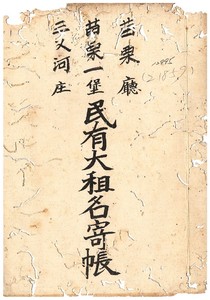 苗栗廳
苗栗一堡
三叉河庄
民有大租名寄帳